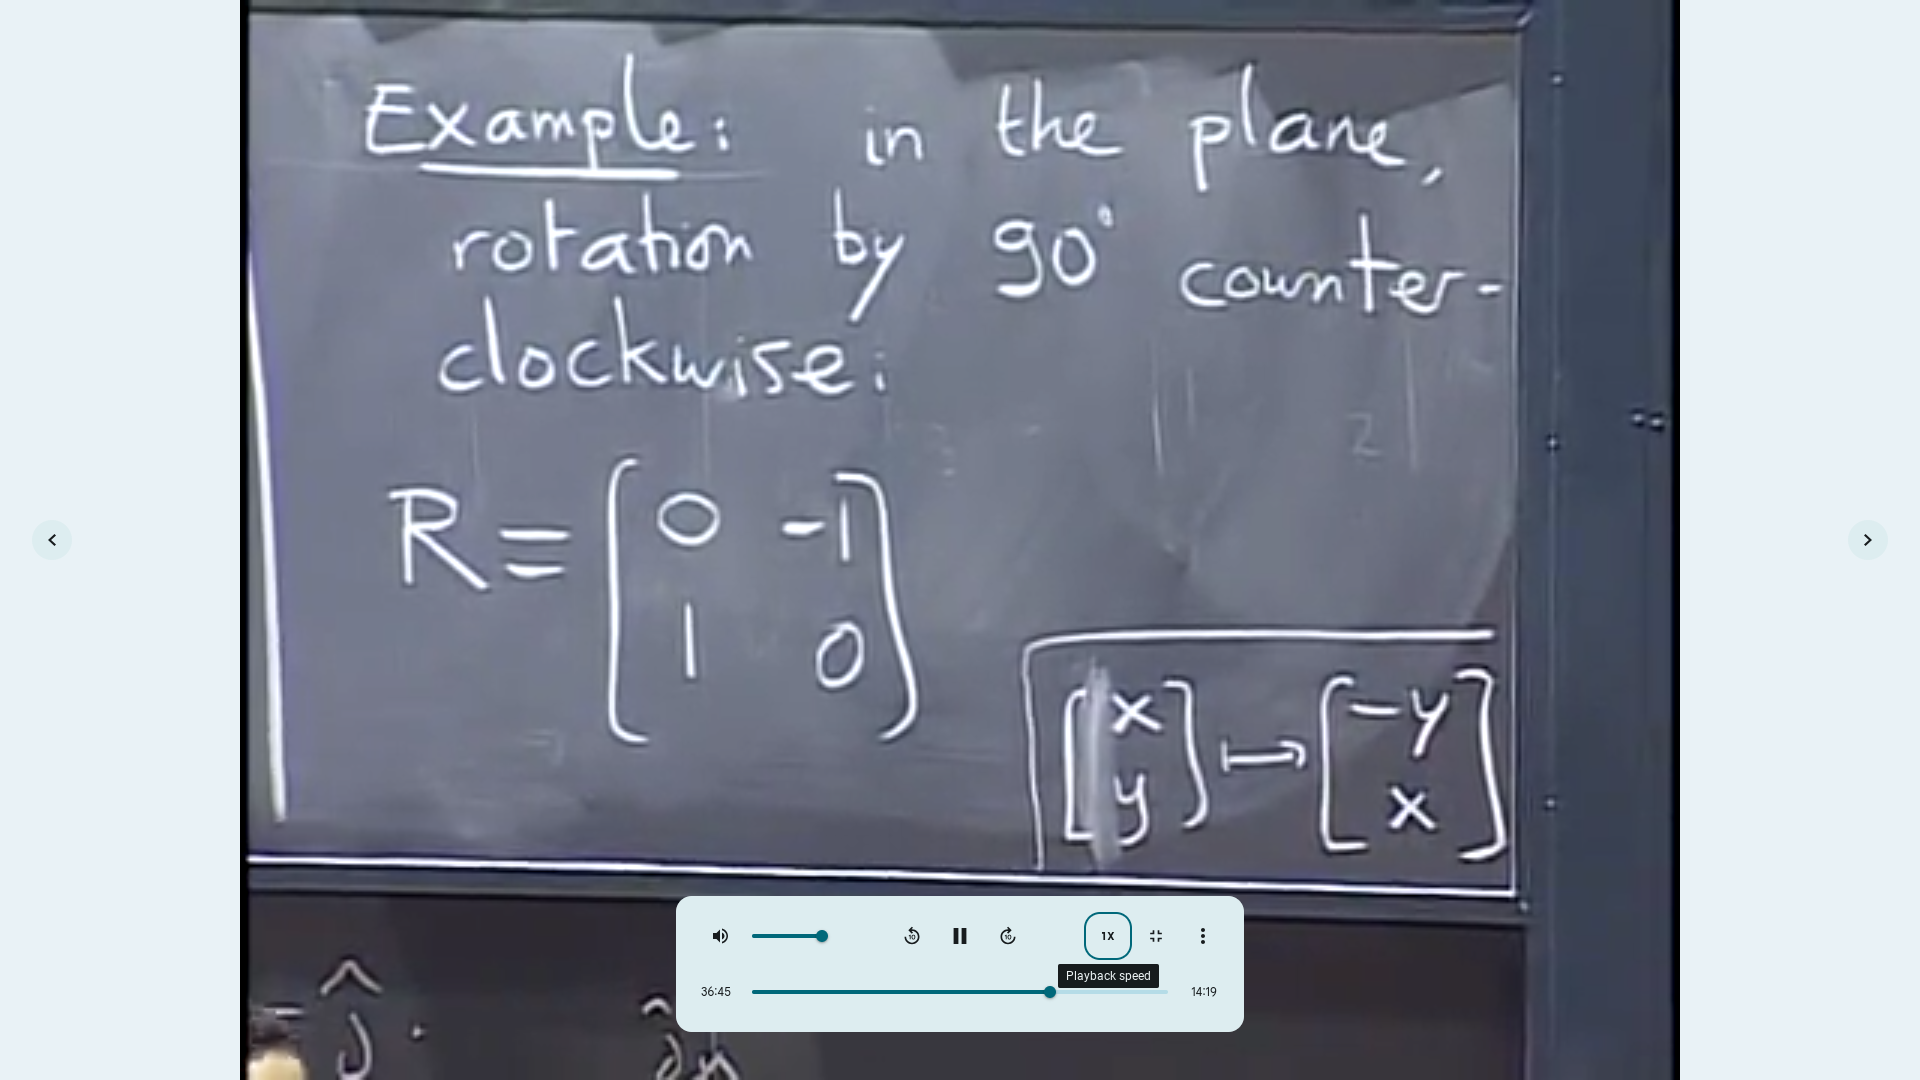 Example: in the plane,
rotation by 90° counter-
clockwise:
R = [0 -1
1 0]
[x
y] ↦ [-y
x]
10
10
1X
Playback speed
36:45
14:19